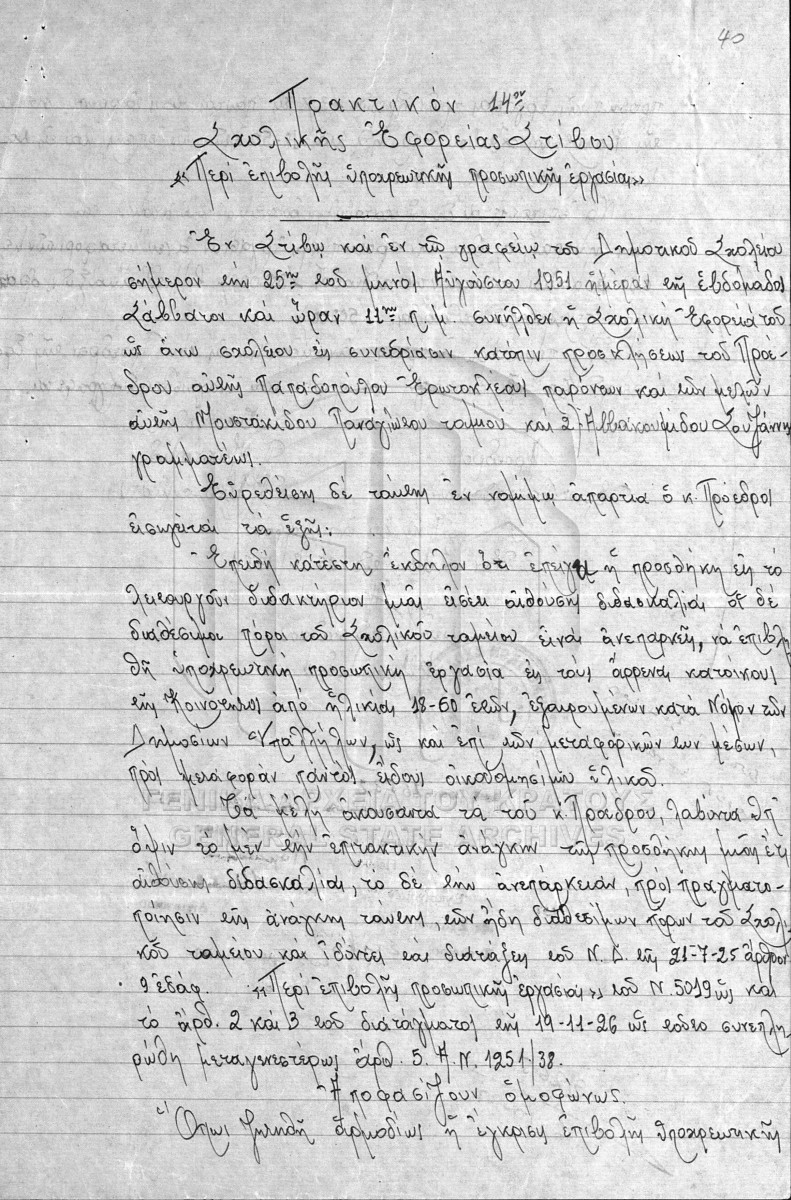 40
Πρακτικόν 14ον
Σχολικῆς Ἐφορείας Στίβου
«Περί ἐπιβολῆς ὑποχρεωτικῆς προσωπικῆς ἐργασίας»
Ἐν Στίβῳ καί ἐν τῷ γραφείῳ τοῦ Δημοτικοῦ Σχολείου
σήμερον τήν 25ην τοῦ μηνός Αὐγούστου 1951 ἡμέραν τῆς ἑβδομάδος
Σάββατον καί ὥραν 11ην π.μ. συνῆλθεν ἡ Σχολική Ἐφορεία τοῦ
ὡς ἄνω σχολείου εἰς συνεδρίασιν κατόπιν προσκλήσεως τοῦ Προέ-
δρου αὐτῆς Παπαδοπούλου Ἐρωτοκλέους παρόντων καί τῶν μελῶν
αὐτῆς Μουστακίδου Παναγιώτου ταμίου καί 2) Ἀββακουμίδου Σουζάννης
γραμματέως.
Εὑρεθείσης δέ ταύτης ἐν νομίμῳ ἀπαρτίᾳ ὁ κ. Πρόεδρος
εἰσηγεῖται τά ἑξῆς:
Ἐπειδή κατέστη ἔκδηλον ὅτι ἐπείγει ἡ προσθήκη εἰς τό
λειτουργοῦν διδακτήριον μιᾶς εἰσέτι αἰθούσης διδασκαλίας οἱ δέ
διαθέσιμοι πόροι τοῦ Σχολικοῦ ταμείου εἶναι ἀνεπαρκεῖς, νά ἐπιβλη
θῇ ὑποχρεωτική προσωπική ἐργασία εἰς τούς ἄρρενας κατοίκους
τῆς Κοινότητος ἀπό ἡλικίας 18-60 ἐτῶν, ἐξαιρουμένων κατά Νόμον τῶν
Δημοσίων Ὑπαλλήλων, ὡς καί ἐπί τῶν μεταφορικῶν των μέσων,
πρός μεταφοράν παντός εἴδους οἰκοδομησίμου ὑλικοῦ.
Τά μέλη ἀκούσαντα τά τοῦ κ. Προέδρου, λαβόντα ὑπ'
ὄψιν τό μέν τήν ἐπιτακτικήν ἀνάγκην τῆς προσθήκης μιᾶς ἔτι
αἰθούσης διδασκαλίας, τό δέ τήν ἀνεπάρκειαν, πρός πραγματο-
ποίησιν τῆς ἀνάγκης ταύτης, τῶν ἤδη διαθεσίμων πόρων τοῦ Σχολι-
κοῦ ταμείου καί ἰδόντες τάς διατάξεις τοῦ Ν.Δ. τῆς 21-7-25 ἄρθρον
9 ἐδάφ. «Περί ἐπιβολῆς προσωπικῆς ἐργασίας» τοῦ Ν. 5019 ὡς καί
τό ἄρθ. 2 καί 3 τοῦ διατάγματος τῆς 19-11-26 ὡς τοῦτο συνεπλη-
ρώθη μεταγενεστέρως ἄρθ. 5. Α.Ν. 1251/38.
Ἀποφασίζουν ὁμοφώνως.
Ὅπως ζητηθῇ ἁρμοδίως ἡ ἔγκρισις ἐπιβολῆς ὑποχρεωτικῆς
ΓΕΝΙΚΑ ΑΡΧΕΙΑ ΤΟΥ ΚΡΑΤΟΥΣ
GENERAL STATE ARCHIVES